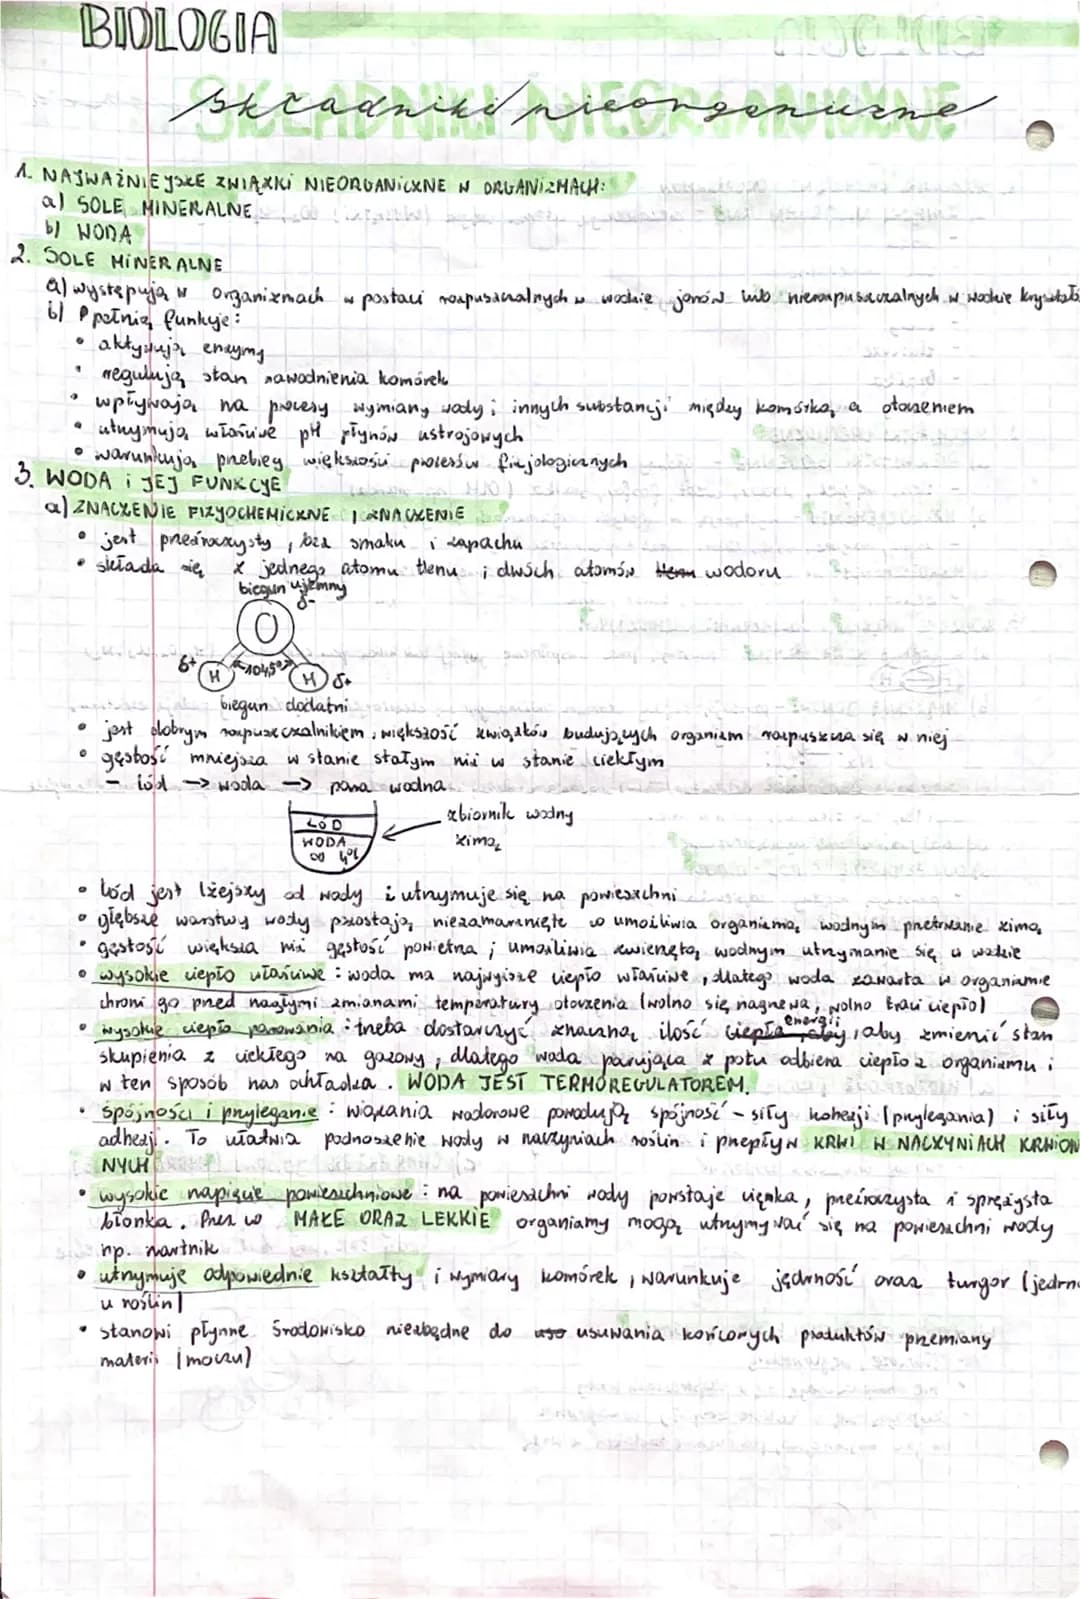 BIOLOGIA
SKŁADNIKI NIEORGANICZNE
składniki nieorganiczne
1. NAJWAŻNIEJSZE ZWIĄZKI NIEORGANICZNE W ORGANIZMACH:
a) SOLE MINERALNE
b) WODA
2. SOLE MINERALNE
a) występują w organizmach w postaci rozpuszczalnych w wodzie jonów lub nierozpuszczalnych w wodzie kryształó
b) Ppełnią funkcje:
• aktywują enzymy
• regulują stan nawodnienia komórek
• wpływają na procesy wymiany wody i innych substancji między komórką a otoczeniem
• utrzymują właściwe pH płynów ustrojowych
• warunkują przebieg większości procesów fizjologicznych
3. WODA i JEJ FUNKCJE
a) ZNACZENIE FIZYOCHEMICZNE I ZNACZENIE
• jest przeźroczysty, bez smaku i zapachu
• składa się z jednego atomu tlenu i dwóch atomów tlenu wodoru
biegun ujemny
δ-
O
δ+ H 104,5° H δ+
biegun dodatni
• jest dobrym rozpuszczalnikiem, większość związków budujących organizm rozpuszcza się w niej
• gęstość mniejsza w stanie stałym niż w stanie ciekłym
- lód → woda → para wodna
zbiornik wodny
zimą
LÓD
WODA
4°C
• lód jest lżejszy od wody i utrzymuje się na powierzchni
• głębsze warstwy wody pozostają niezamarznięte co umożliwia organizmą wodnym przetrwanie zimą
• gęstość większa niż gęstość powietrza; umożliwia zwierzętą wodnym utrzymanie się w wodzie
• wysokie ciepło właściwe: woda ma najwyższe ciepło właściwe, dlatego woda zawarta w organizmie
chroni go przed nagłymi zmianami temperatury otoczenia (wolno się nagrzewa, wolno traci ciepło)
• wysokie ciepło parowania: trzeba dostarczyć znaczną ilość ciepła energii, aby zmienić stan
skupienia z ciekłego na gazowy, dlatego woda parująca z potu odbiera ciepło z organizmu i
w ten sposób nas ochładza. WODA JEST TERMOREGULATOREM.
• spójności i przyleganie: wiązania wodorowe powodują spójność - siły kohezji (przylegania) i siły
adhezji. To ułatwia podnoszenie wody w naczyniach roślin i przepływ KRWI W NACZYNIACH KRWION
NYCH
• wysokie napięcie powierzchniowe: na powierzchni wody powstaje cienka, przeźroczysta i sprężysta
błonka. Przez co MAŁE ORAZ LEKKIE organizmy mogą utrzymywać się na powierzchni wody
np. nartnik
• utrzymuje odpowiednie kształty i wymiary komórek, warunkuje jędrność oraz turgor (jędrno
u roślin)
• stanowi płynne środowisko niezbędne do usuwania końcowych produktów przemiany
materii (moczu)